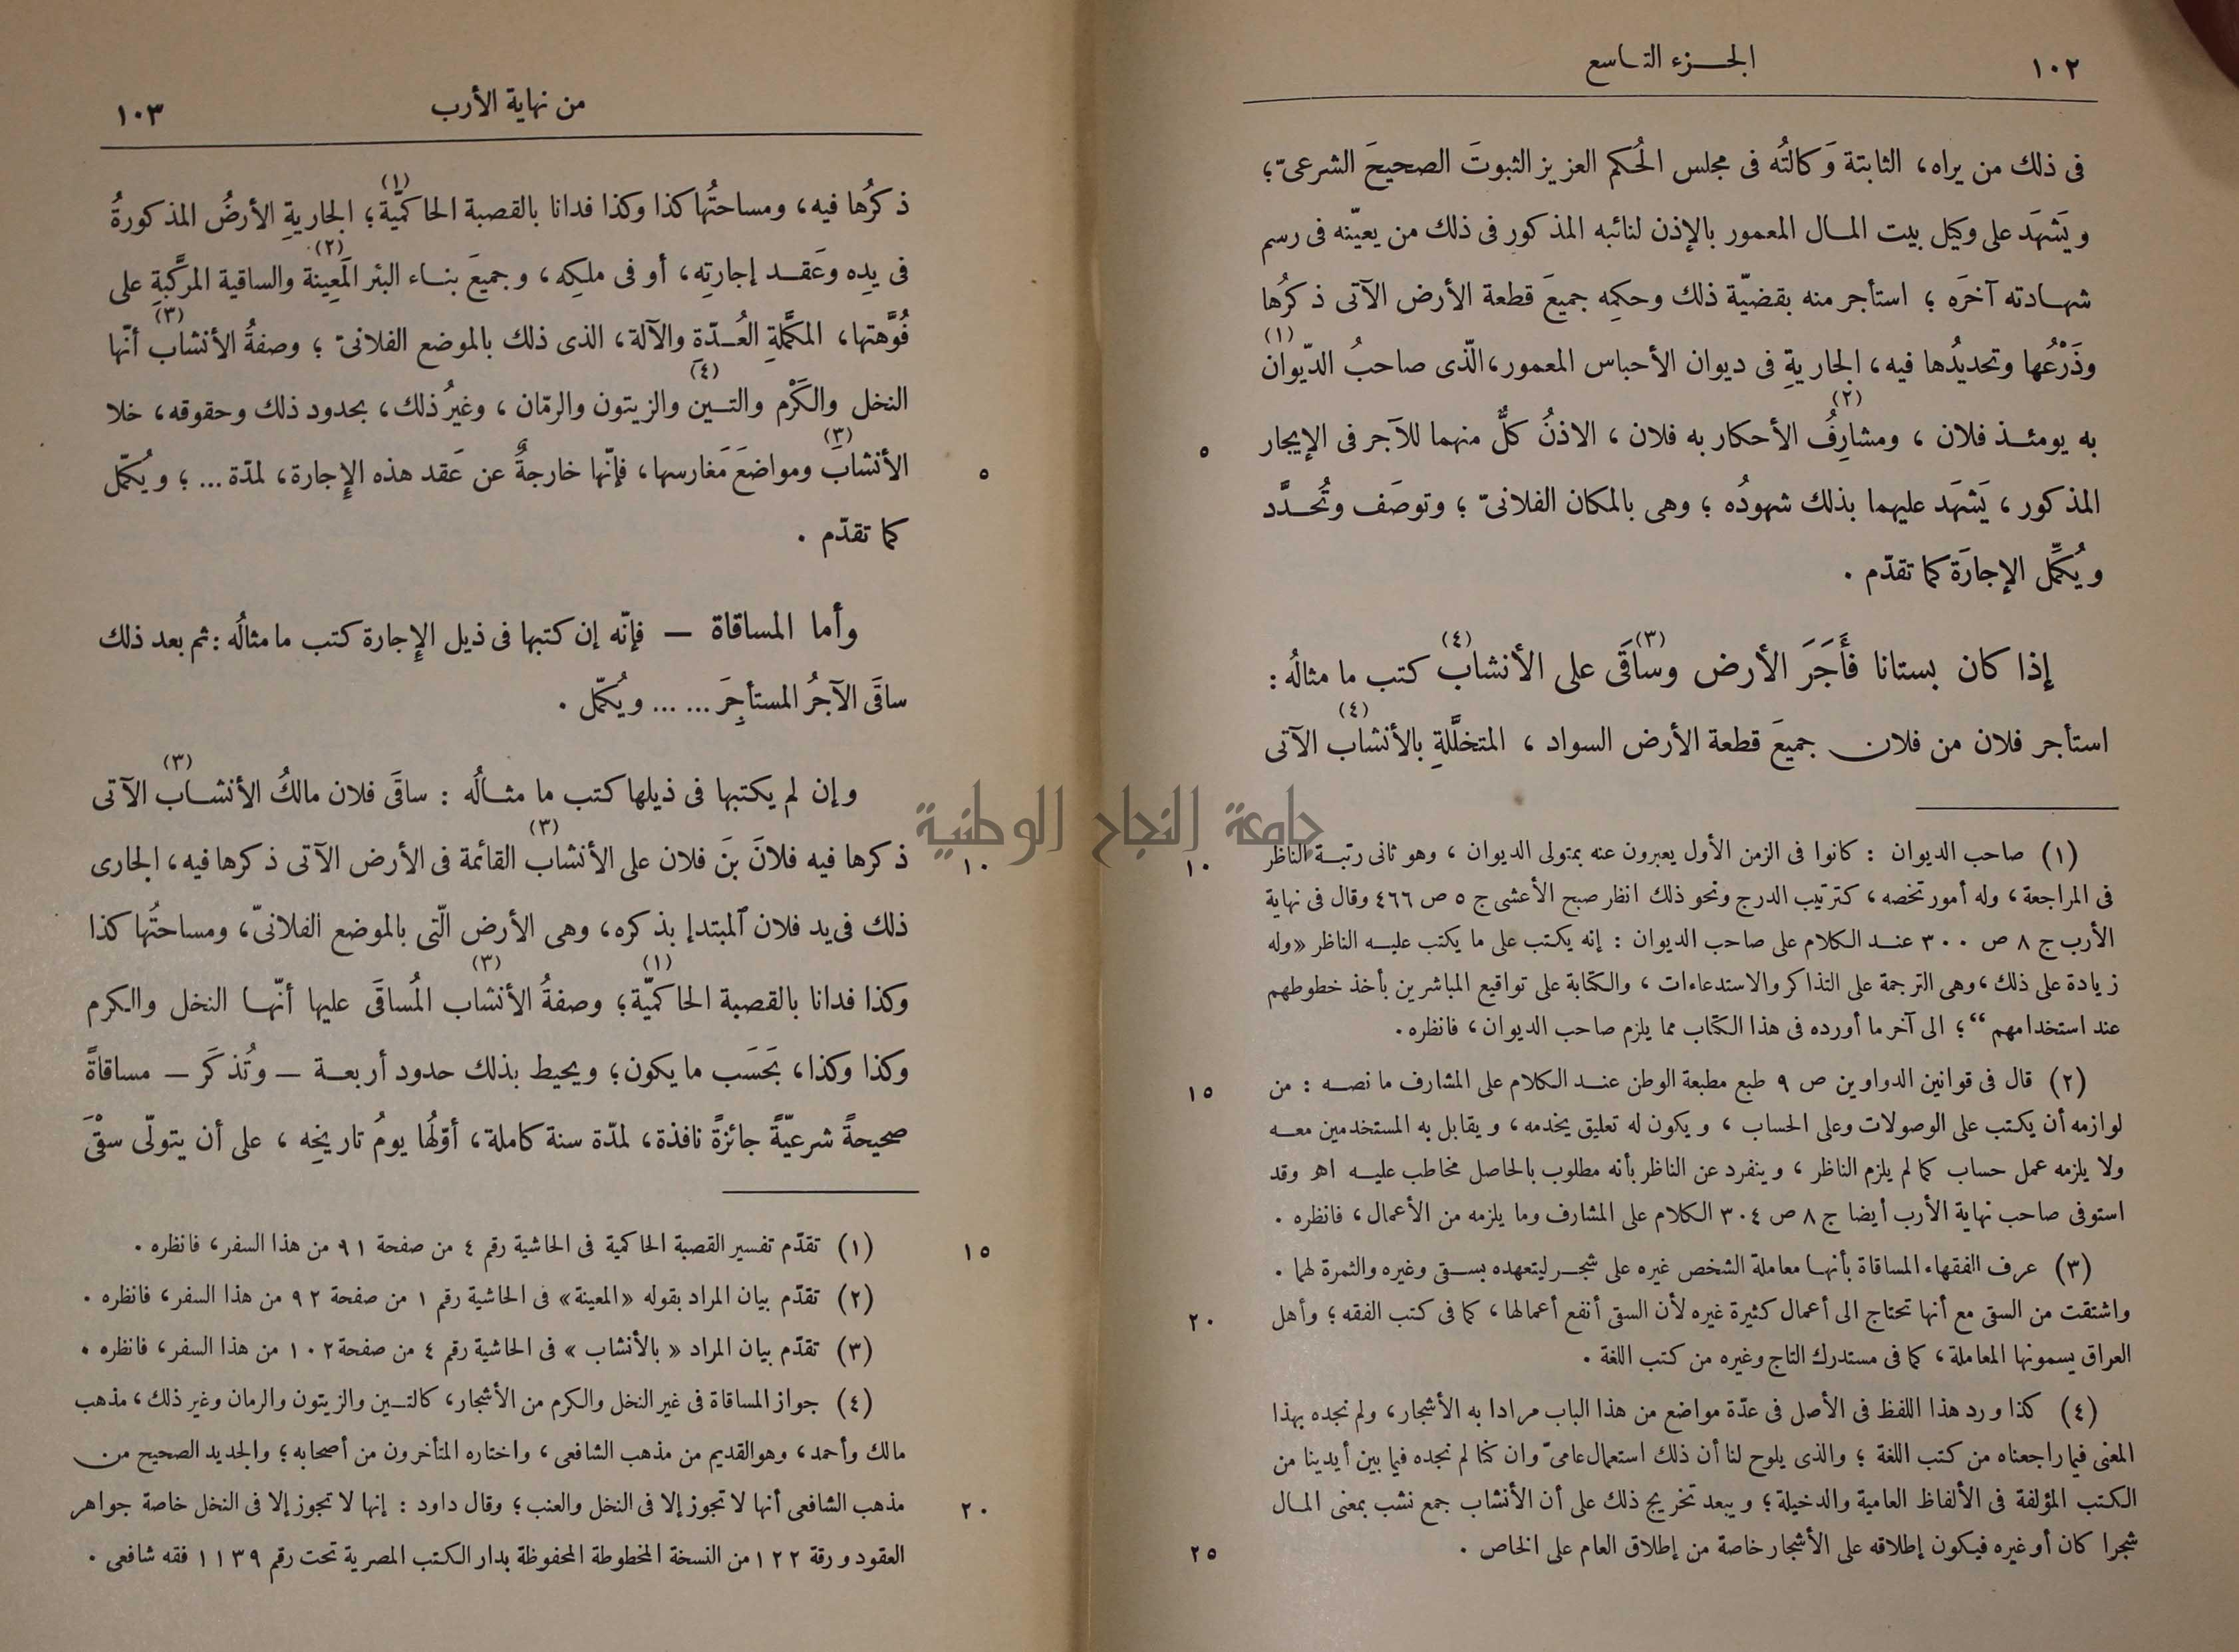 ١٠٢
الجزء التاسع
فى ذلك من يراه، الثابتة وَكالتُه فى مجلس الحُكم العزيز الثبوتَ الصحيحَ الشرعىّ؛
ويَشهَد على وكيل بيت المال المعمور بالإذن لنائبه المذكور فى ذلك من يعيّنه فى رسم
شهادته آخرَه؛ استأجر منه بقضيّة ذلك وحكمِه جميعَ قطعة الأرض الآتى ذكرُها
وذَرْعُها وتحديدُها فيه، الجاريةِ فى ديوان الأحباس المعمور، الّذى صاحبُ الدّيوان (١)
به يومئذ فلان، ومشارِفُ (٢) الأحكار به فلان، الاذنُ كلٌّ منهما للآجر فى الإيجار
٥
المذكور، يَشهَد عليهما بذلك شهودُه؛ وهى بالمكان الفلانىّ؛ وتوصَف وتُحدَّد
ويُكمَّل الإجارَة كما تقدّم.
إذا كان بستانا فأَجَرَ الأرض وساقَى (٣) على الأنشاب (٤) كتب ما مثالُه:
استأجر فلان من فلان جميعَ قطعة الأرض السواد، المتخلَّلةِ بالأنشاب (٤) الآتى
(١) صاحب الديوان : كانوا فى الزمن الأول يعبرون عنه بمتولى الديوان، وهو ثانى رتبة الناظر
١٠
فى المراجعة، وله أمور تخصه، كترتيب الدرج ونحو ذلك انظر صبح الأعشى ج ٥ ص ٤٦٦ وقال فى نهاية
الأرب ج ٨ ص ٣٠٠ عند الكلام على صاحب الديوان : إنه يكتب على ما يكتب عليه الناظر «وله
زيادة على ذلك، وهى الترجمة على التذاكر والاستدعاءات، والكتابة على تواقيع المباشرين بأخذ خطوطهم
عند استخدامهم“؛ الى آخر ما أورده فى هذا الكتاب مما يلزم صاحب الديوان، فانظره.
(٢) قال فى قوانين الدواوين ص ٩ طبع مطبعة الوطن عند الكلام على المشارف ما نصه : من
١٥
لوازمه أن يكتب على الوصولات وعلى الحساب، ويكون له تعليق يخدمه، ويقابل به المستخدمين معه
ولا يلزمه عمل حساب كما لم يلزم الناظر، وينفرد عن الناظر بأنه مطلوب بالحاصل مخاطب عليه اهـ وقد
استوفى صاحب نهاية الأرب أيضا ج ٨ ص ٣٠٤ الكلام على المشارف وما يلزمه من الأعمال، فانظره.
(٣) عرف الفقهاء المساقاة بأنها معاملة الشخص غيره على شجر ليتعهده بسقى وغيره والثمرة لهما.
واشتقت من السقى مع أنها تحتاج الى أعمال كثيرة غيره لأن السقى أنفع أعمالها، كما فى كتب الفقه؛ وأهل
٢٠
العراق يسمونها المعاملة، كما فى مستدرك التاج وغيره من كتب اللغة.
(٤) كذا ورد هذا اللفظ فى الأصل فى عدّة مواضع من هذا الباب مرادا به الأشجار، ولم نجده بهذا
المعنى فيما راجعناه من كتب اللغة؛ والذى يلوح لنا أن ذلك استعمال عامىّ وان كنا لم نجده فيما بين أيدينا من
الكتب المؤلفة فى الألفاظ العامية والدخيلة؛ ويبعد تخريج ذلك على أن الأنشاب جمع نشب بمعنى المال
شجرا كان أو غيره فيكون إطلاقه على الأشجار خاصة من إطلاق العام على الخاص.
٢٥
من نهاية الأرب
١٠٣
ذكرُها فيه، ومساحتُها كذا وكذا فدانا بالقصبة الحاكميّة (١)؛ الجاريةِ الأرضُ المذكورةُ
فى يدِه وعَقد إجارتِه، أو فى ملكِه، وجميعَ بناء البئر المَعِينة (٢) والساقية المركَّبةِ على
فُوَّهتها، المكمَّلةِ العُدّةِ والآلة، الذى ذلك بالموضع الفلانىّ؛ وصفةُ الأنشاب (٣) أنّها
النخل والكَرْم والتين (٤) والزيتون والرمّان، وغيرُ ذلك، بحدود ذلك وحقوقه، خلا
الأنشابَ (٣) ومواضعَ مَغارسها، فإنّها خارجةٌ عن عَقد هذه الإجارة، لمدّة ...؛ ويُكمّل
٥
كما تقدّم.
وأما المساقاة — فإنّه إن كتبها فى ذيل الإجارة كتب ما مثالُه: ثم بعد ذلك
ساقَى الآجرُ المستأجِرَ ... ... ويُكمّل.
وإن لم يكتبها فى ذيلها كتب ما مثالُه : ساقَى فلان مالكُ الأنشاب (٣) الآتى
ذكرها فيه فلانَ بنَ فلان على الأنشاب (٣) القائمة فى الأرض الآتى ذكرها فيه، الجارى
١٠
ذلك فى يد فلان المبتدإ بذكره، وهى الأرض الّتى بالموضع الفلانىّ، ومساحتُها كذا
وكذا فدانا بالقصبة الحاكميّة (١)؛ وصفةُ الأنشاب (٣) المُساقَى عليها أنّها النخل والكرم
وكذا وكذا، بحَسَب ما يكون؛ ويحيط بذلك حدود أربعة — وتُذكَر — مساقاةً
صحيحةً شرعيّةً جائزةً نافذة، لمدّة سنة كاملة، أوّلُها يومُ تاريخِه، على أن يتولّى سقْىَ
(١) تقدّم تفسير القصبة الحاكمية فى الحاشية رقم ٤ من صفحة ٩١ من هذا السفر، فانظره.
١٥
(٢) تقدّم بيان المراد بقوله «المعينة» فى الحاشية رقم ١ من صفحة ٩٢ من هذا السفر، فانظره.
(٣) تقدّم بيان المراد «بالأنشاب» فى الحاشية رقم ٤ من صفحة ١٠٢ من هذا السفر، فانظره.
(٤) جواز المساقاة فى غير النخل والكرم من الأشجار، كالتين والزيتون والرمان وغير ذلك، مذهب
مالك وأحمد، وهو القديم من مذهب الشافعى، واختاره المتأخرون من أصحابه؛ والجديد الصحيح من
مذهب الشافعى أنها لا تجوز إلا فى النخل والعنب؛ وقال داود : إنها لا تجوز إلا فى النخل خاصة جواهر
٢٠
العقود ورقة ١٢٢ من النسخة المخطوطة المحفوظة بدار الكتب المصرية تحت رقم ١١٣٩ فقه شافعى.
جامعة النجاح الوطنية